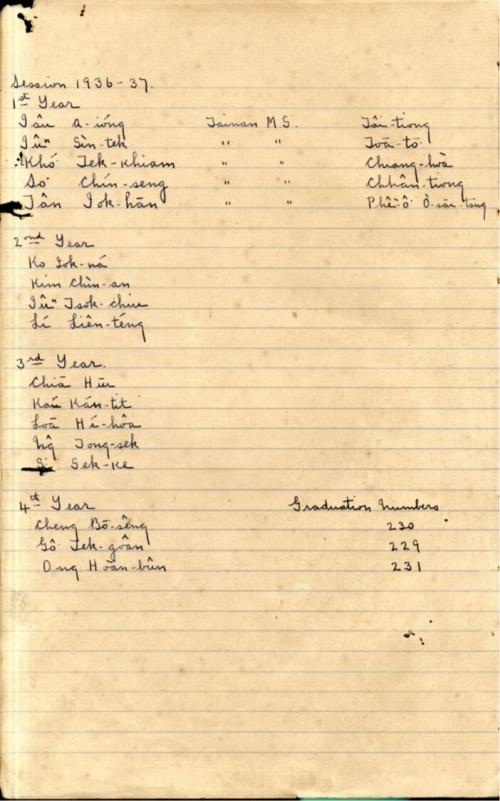 Session 1936-37.
1st Year
Tâu A-ióng Tainan M.S. Tâi-tiong
Iûⁿ Sìn-tek " " Toā-tō
Khó͘ Tek-khiam " " Chiang-hoà
So͘ Chín-seng " " Chhân-tiong
Tân Iok-hān " " Phêⁿ-ô͘
2nd Year
Ko Iok-ná
Kim Chìn-an
Iûⁿ Tsok-chiu
Lí Liên-téng
3rd Year.
Chiā Hūi
Kaú Kán-tit
Loā Hí-hôa
Ng Tong-sek
Sek-ke
4th Year Graduation Numbers
Cheng Bō-sêng 230
Gô͘ Tek-goân 229
Ong Hoān-bûn 231